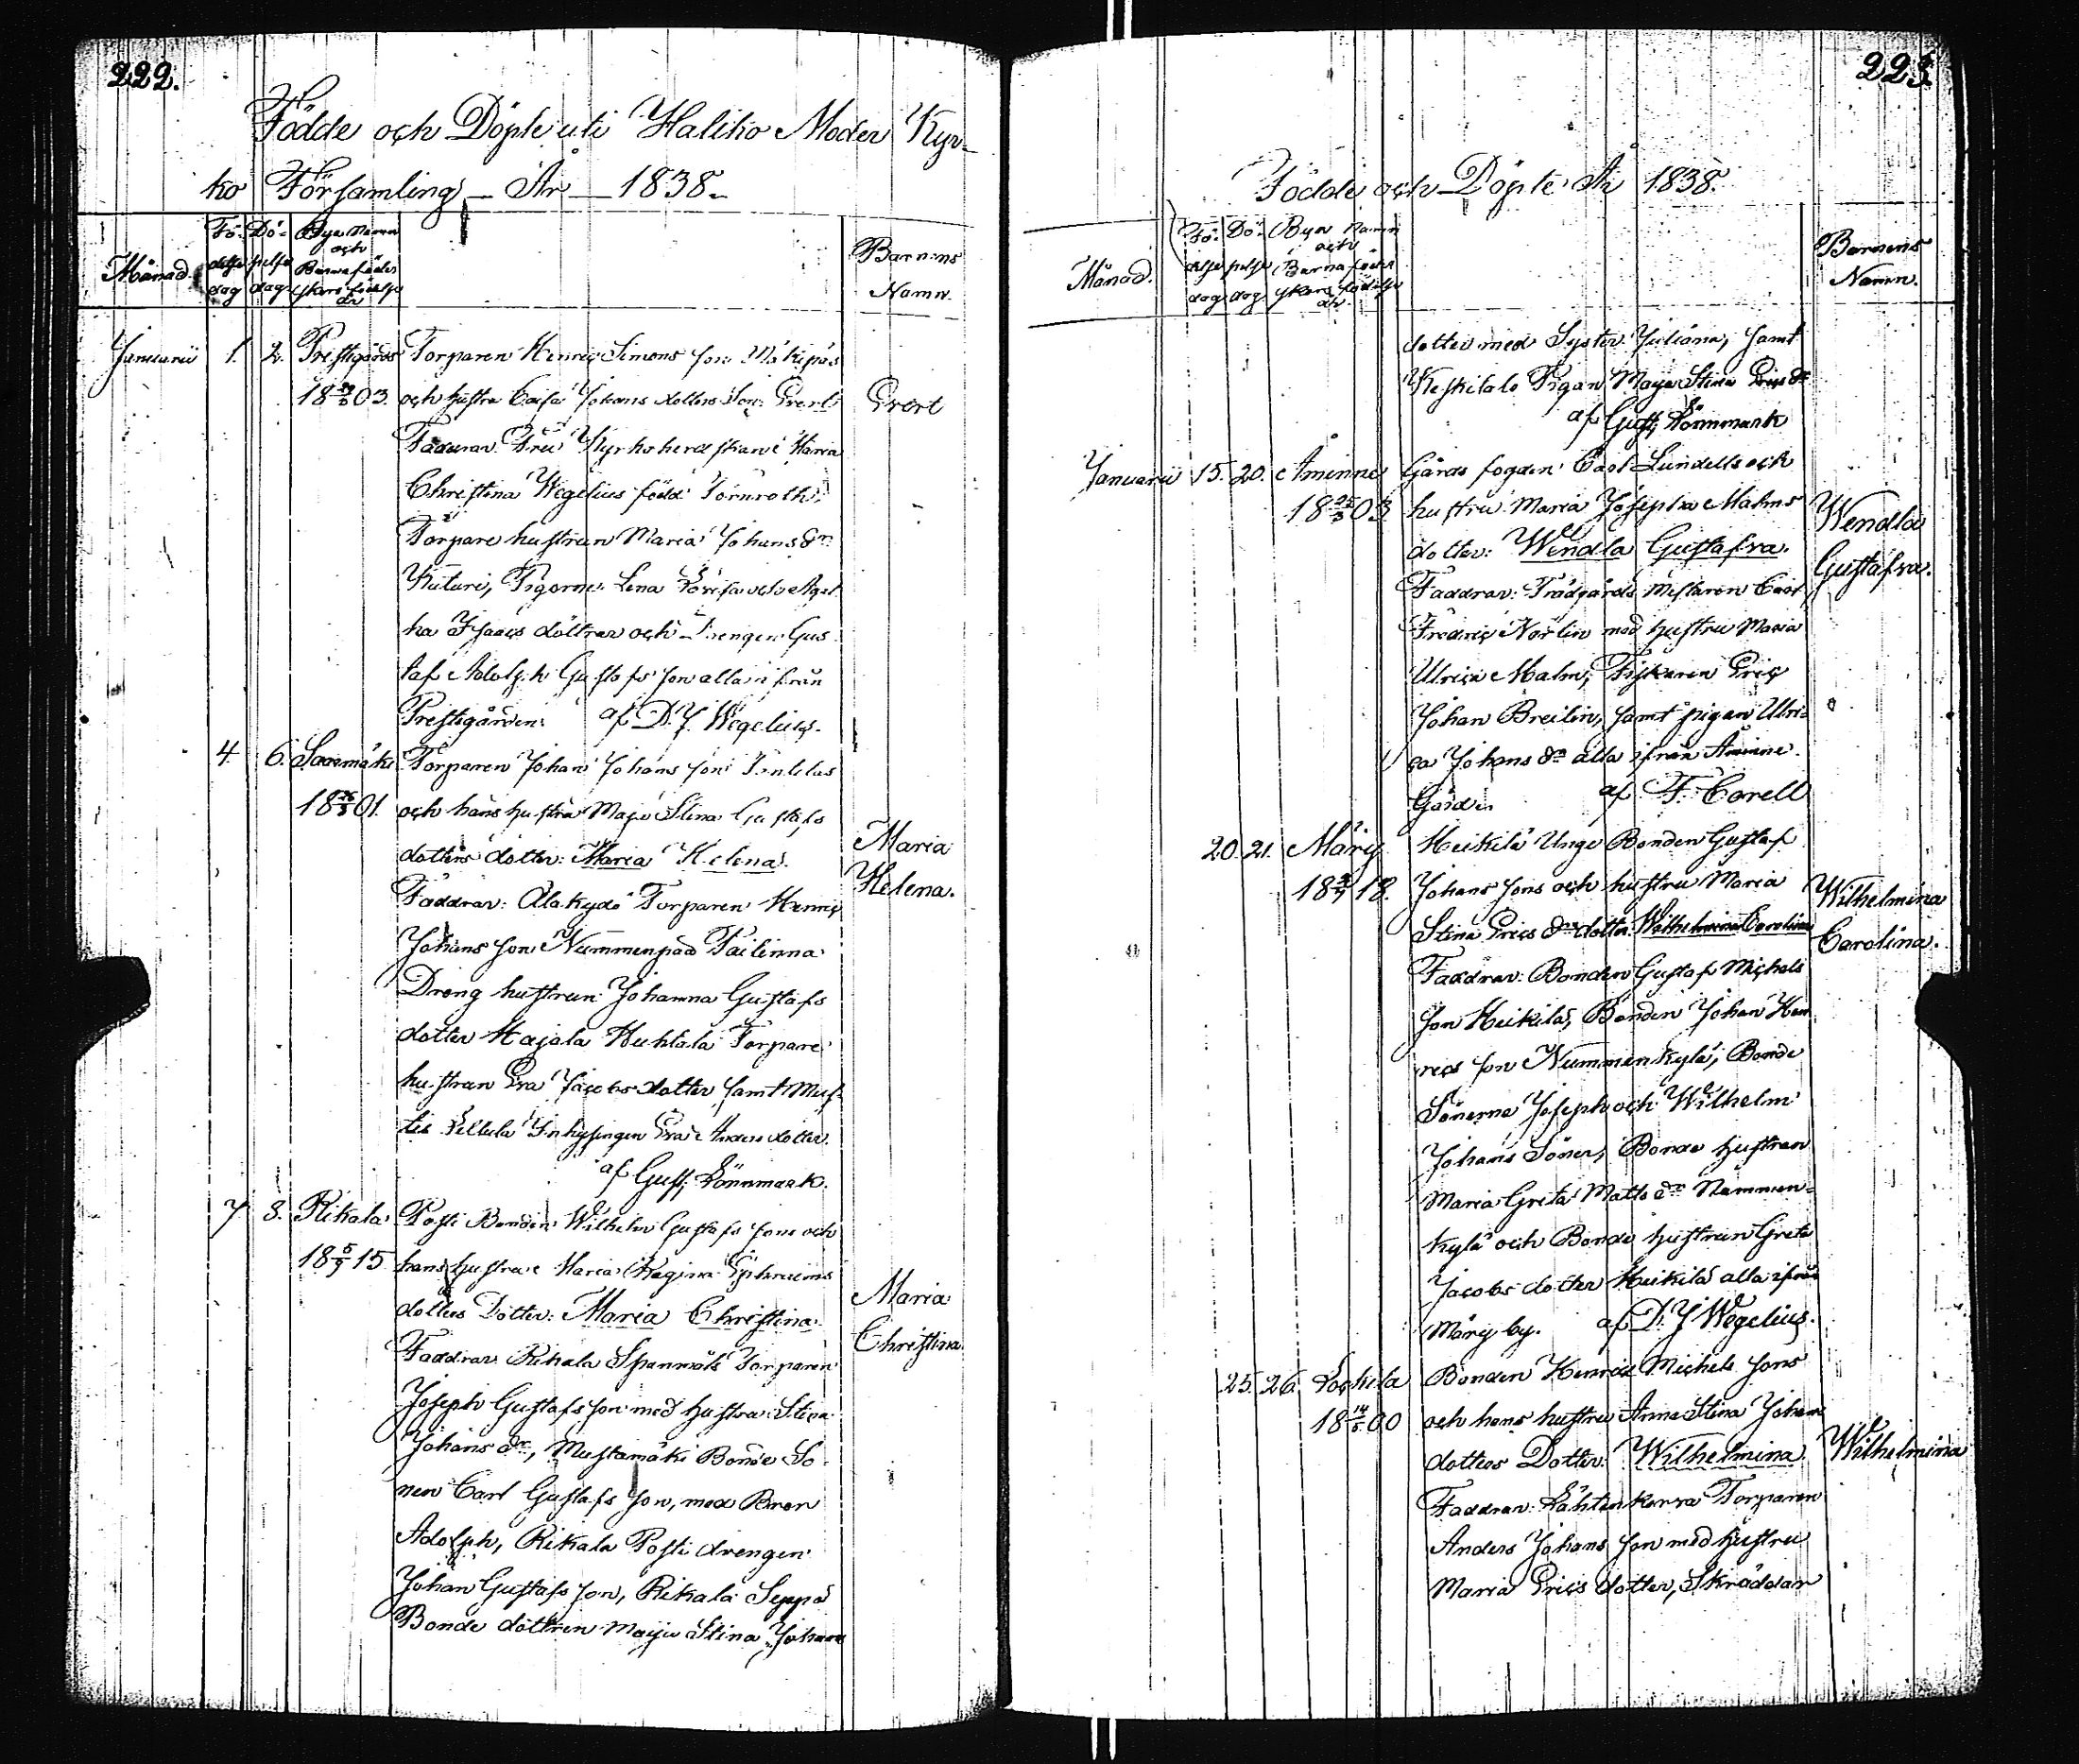 222.
Födde och Döpte uti Haliko Moder Kyr-
ko Församling – År – 1838.
Månad.
Fö-
delse
dag
Dö-
pelse
dag
Bya Namn
och
Barnaföder
skans födelse
år
Barnens
Namn.
Januarii 1. 2. Prestgårds Torparen Henric Simons son Mäkipäs
18 03. och hustru Caisa Johans dotters Son: Evert Evert
Faddrar: Fru Kyrkoherdskan Maria
Christina Wegelius född Törnroth,
Torpare hustrun Maria Johans dr
Kuturi, Pigorne: Lena Lovisa och Aga
ha Isaacs döttrar och Drengen Gus
taf Adolph Gustafs son alla ifrån
Prestgården. af D. J. Wegelius.
4. 6. Saarmäki Torparen Johan Johans son
18 01. och hans hustru Maja Stina Gustafs
dotters dotter: Maria Helena. Maria
Helena.
Faddrar: Alakydö Torparen Henric
Johans son Nummenpää Pailinna
Dreng hustrun Johanna Gustafs
dotter Majala Huhtala Torpare
hustrun Eva Jacobs dotter samt Mus
tis Pellula Inhysingen Eva Anders dotter.
af Gust; Lönnmark.
7 8. Rikala Posti Bonden Wilhelm Gustafs sons och
18 5/7 15 hans hustrus Maria Regina Ephraims
dotters Dotter: Maria Christina. Maria
Christina
Faddrar Rikala Spannmäki Torparen
Joseph Gustafs son med hustru Stina
Johans dr, Mustamäki Bonde So
nen Carl Gustafs son, med Broren
Adolph, Rikala Posti drengen
Johan Gustafs son, Rikala Seppä
Bonde dottren Maja Stina Johans
223.
Födde och Döpte År 1838.
Månad.
Fö-
delse
dag
Dö-
pelse
dag.
Bya Namn
och
Barnaföder
skans födelse
år.
Barnens
Namn.
dotter med Syster Juliana, samt
Keskitalo Pigan Maja Stina Erics dr
af Gust; Lönnmark
Januarii 15. 20. Åminne Gårds fogden Carl Lundells och
18 25/3 03 hustru Maria Josepha Malms
dotter: Wendla Gustafva. Wendla
Gustafva.
Faddrar: Trädgårds Mestaren Carl
Fredric Norlin med hustru Maria
Ulrica Malm, Fiskaren Eric
Johan Breilin, samt pigan Ulri-
ca Johans dr alla ifrån Åminne
Gård. af F. Carell
20. 21. Märy Heikilä Unge Bonden Gustaf
18 18. Johans sons och hustru Maria
Stina Erics drs dotter Wilhelmina Carolina Wilhelmina
Carolina.
Faddrar: Bonden Gustaf Michels
son Heikilä, Bonden Johan Hen
rics son Nummenkylä, Bonde
Sönerna Joseph och Wilhelm
Johans Söner, Bonde hustrun
Maria Greta Matts dr Nummen-
kylä och Bonde hustrun Greta
Jacobs dotter Heikilä alla ifrån
Märy by. af D. J Wegelius.
25. 26. Lockila Bonden Henric Michels sons
18 14/5 00 och hans hustru Anna Stina Johans
dotters Dotter: Wilhelmina Wilhelmina
Faddrar: Lähtenkorva Torparen
Anders Johans son med hustru
Maria Erics dotter, Skräddar